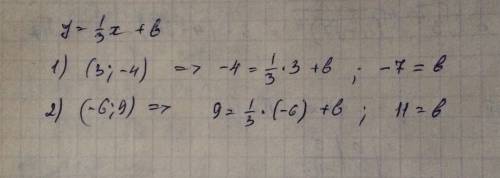 y = 1/3 x + b
1) (3; -4) => -4 = 1/3 · 3 + b ; -7 = b
2) (-6; 9) => 9 = 1/3 · (-6) + b ; 11 = b